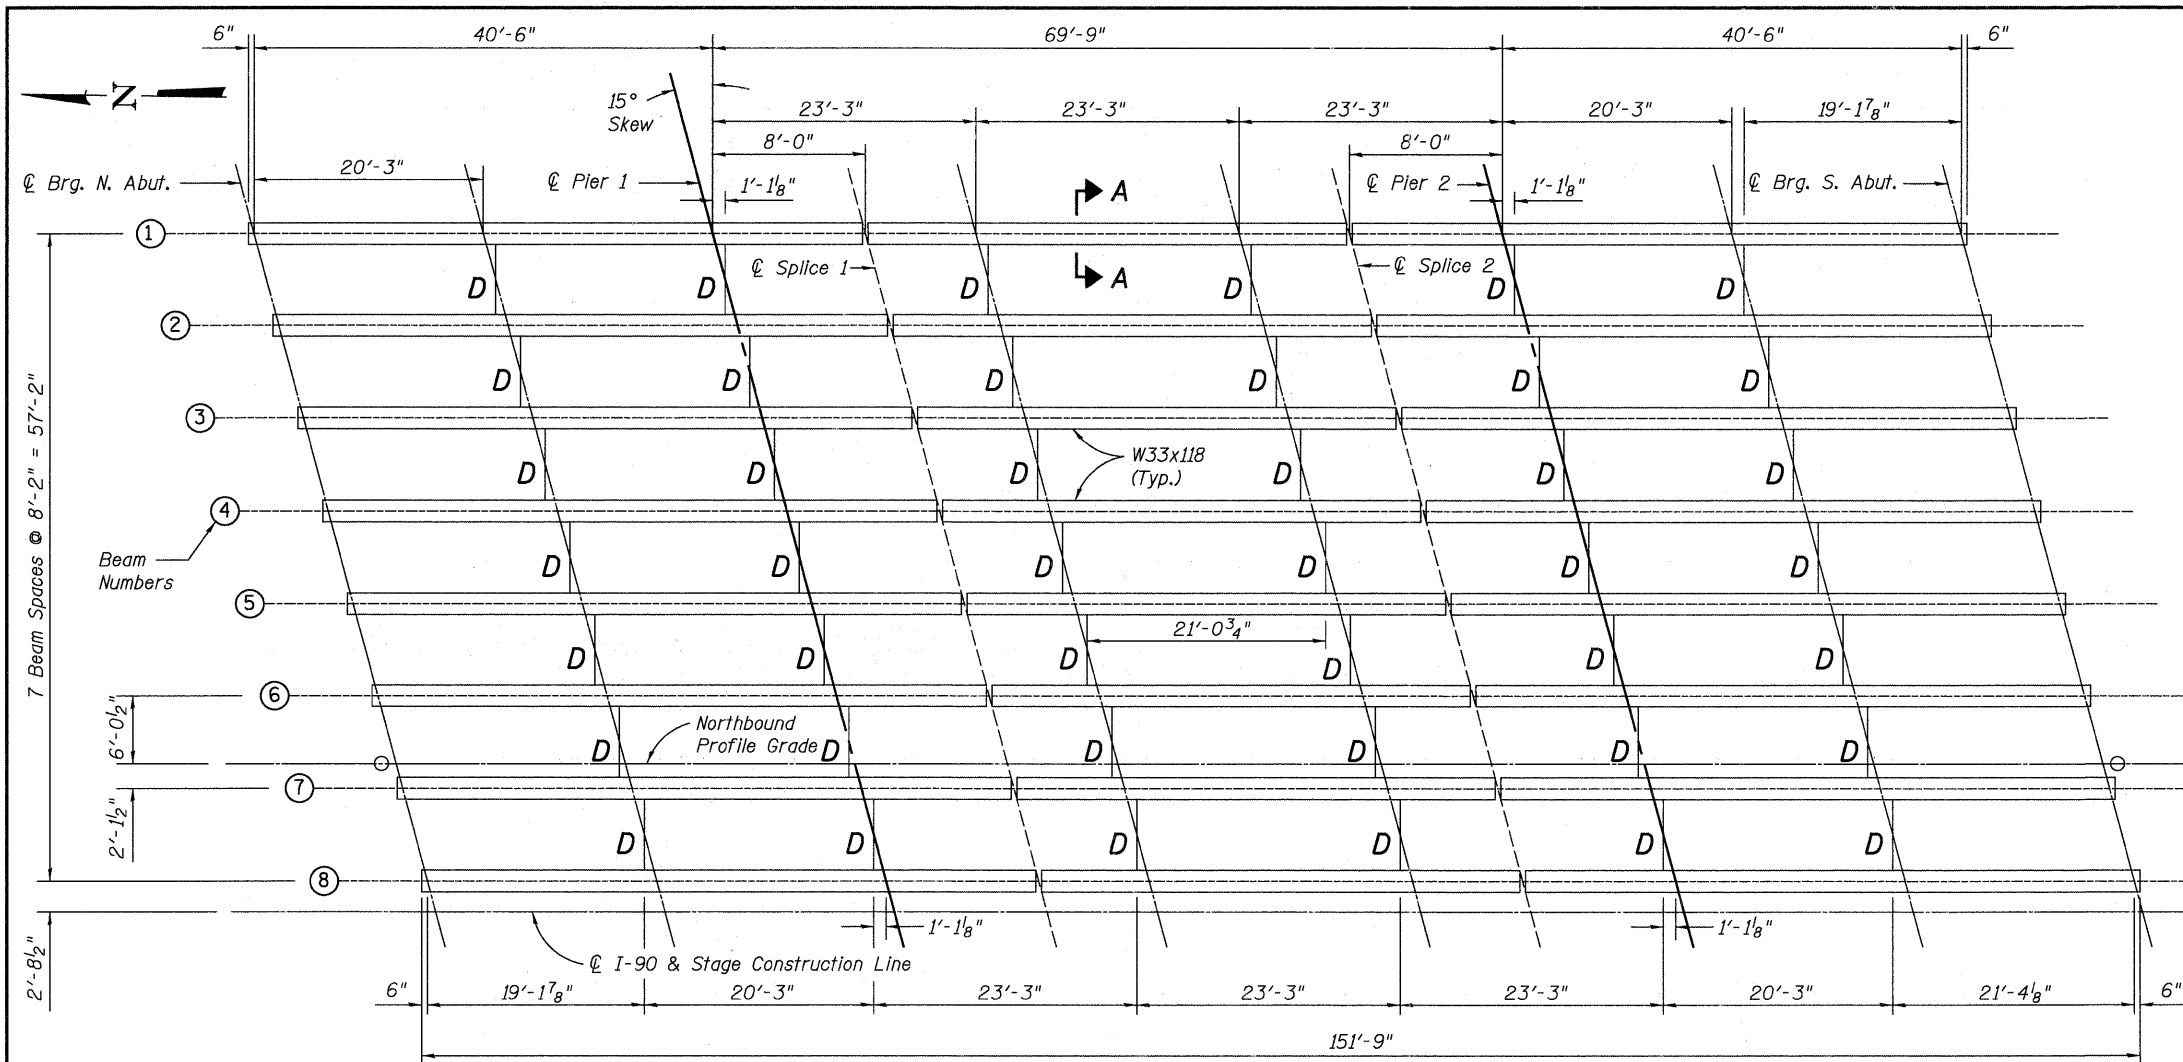 6" 40'-6" 69'-9" 40'-6" 6"
N
15°
Skew
23'-3" 23'-3" 23'-3" 20'-3" 19'-1 7/8"
8'-0" 8'-0"
20'-3"
℄ Brg. N. Abut. ℄ Pier 1 1'-1 1/8" A ℄ Pier 2 1'-1 1/8" ℄ Brg. S. Abut.
1
℄ Splice 1 A ℄ Splice 2
D D D D D D
2
D D D D D D
3
W33x118
(Typ.)
D D D D D D
4
Beam
Numbers
D D D D D D
5
21'-0 3/4"
D D D D D D
6
7 Beam Spaces @ 8'-2" = 57'-2"
6'-0 1/2"
Northbound
Profile Grade
D D D D D D
7
2'-1 1/2"
D D D D D D
8
1'-1 1/8" 1'-1 1/8"
2'-8 1/2"
℄ I-90 & Stage Construction Line
6" 19'-1 7/8" 20'-3" 23'-3" 23'-3" 23'-3" 20'-3" 21'-4 1/8" 6"
151'-9"